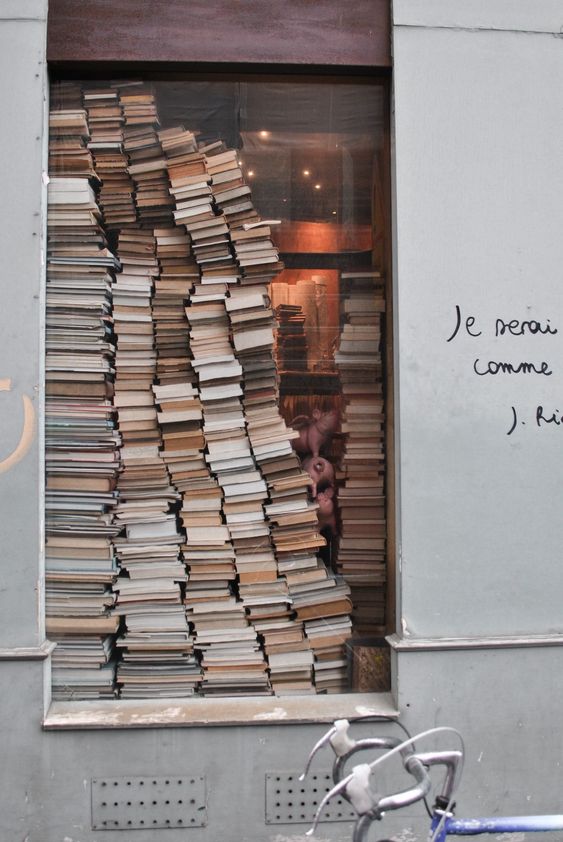 Je serai
comme
J.